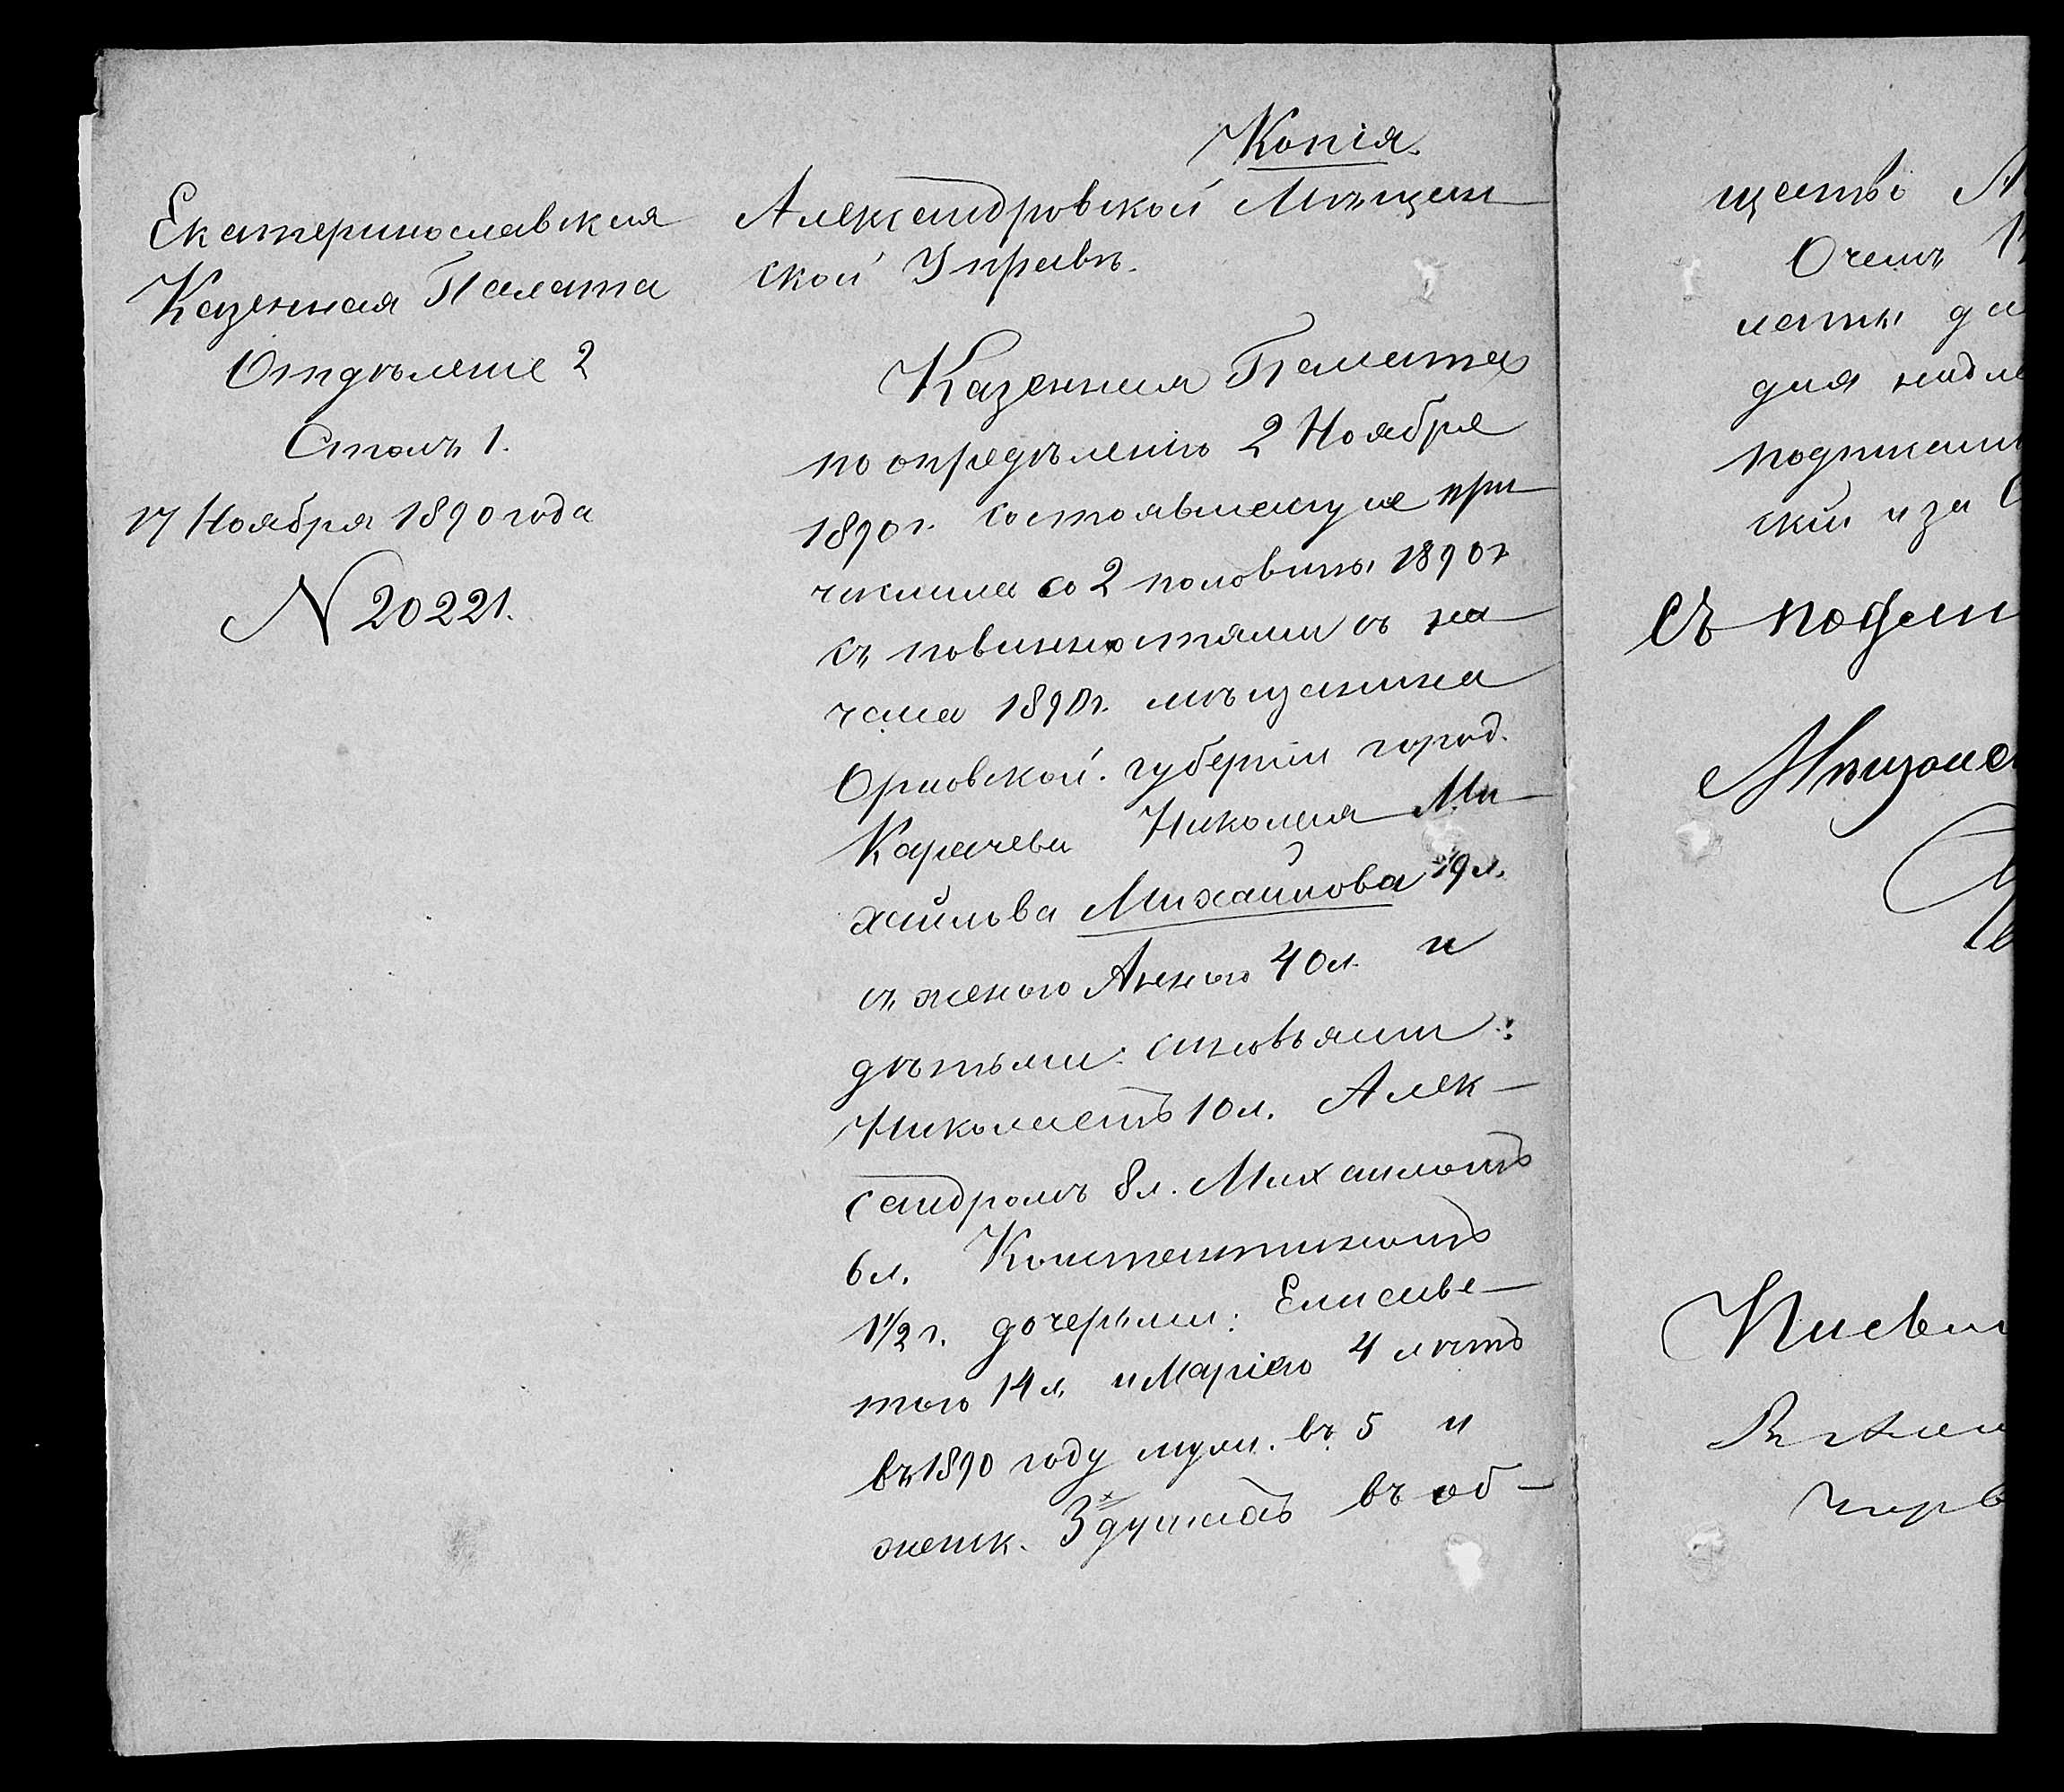 Копія.
Екатеринославская
Казенная Палата
Отдѣленіе 2
Столъ 1.
17 Ноября 1890 года
N 20221.
Александровской Мѣщан
ской Управѣ.
Казенная Палата
по опредѣленію 2 Ноября
1890 г. состоявшемуся при
числила со 2 половины 1890 г
съ повинностями съ на
чала 1890 г. мѣщанина
Орловской губерніи город.
Карачева Николая Ми
хайлова Михайлова 49 л.
съ женою Анною 40 л. и
дѣтьми: сыновьями:
Николаемъ 10 л. Алек-
сандромъ 8 л. Михаиломъ
6 л. Константиномъ
1 1/2 г. дочерьми: Елисаве-
тою 14 л. и Маріею 4 лѣтъ
въ 1890 году муж. въ 5 и
женск. 3х душахъ въ об-
щество
О чемъ
латы
для надле
подписали
скій и за
Съ подлин
Мѣщанс